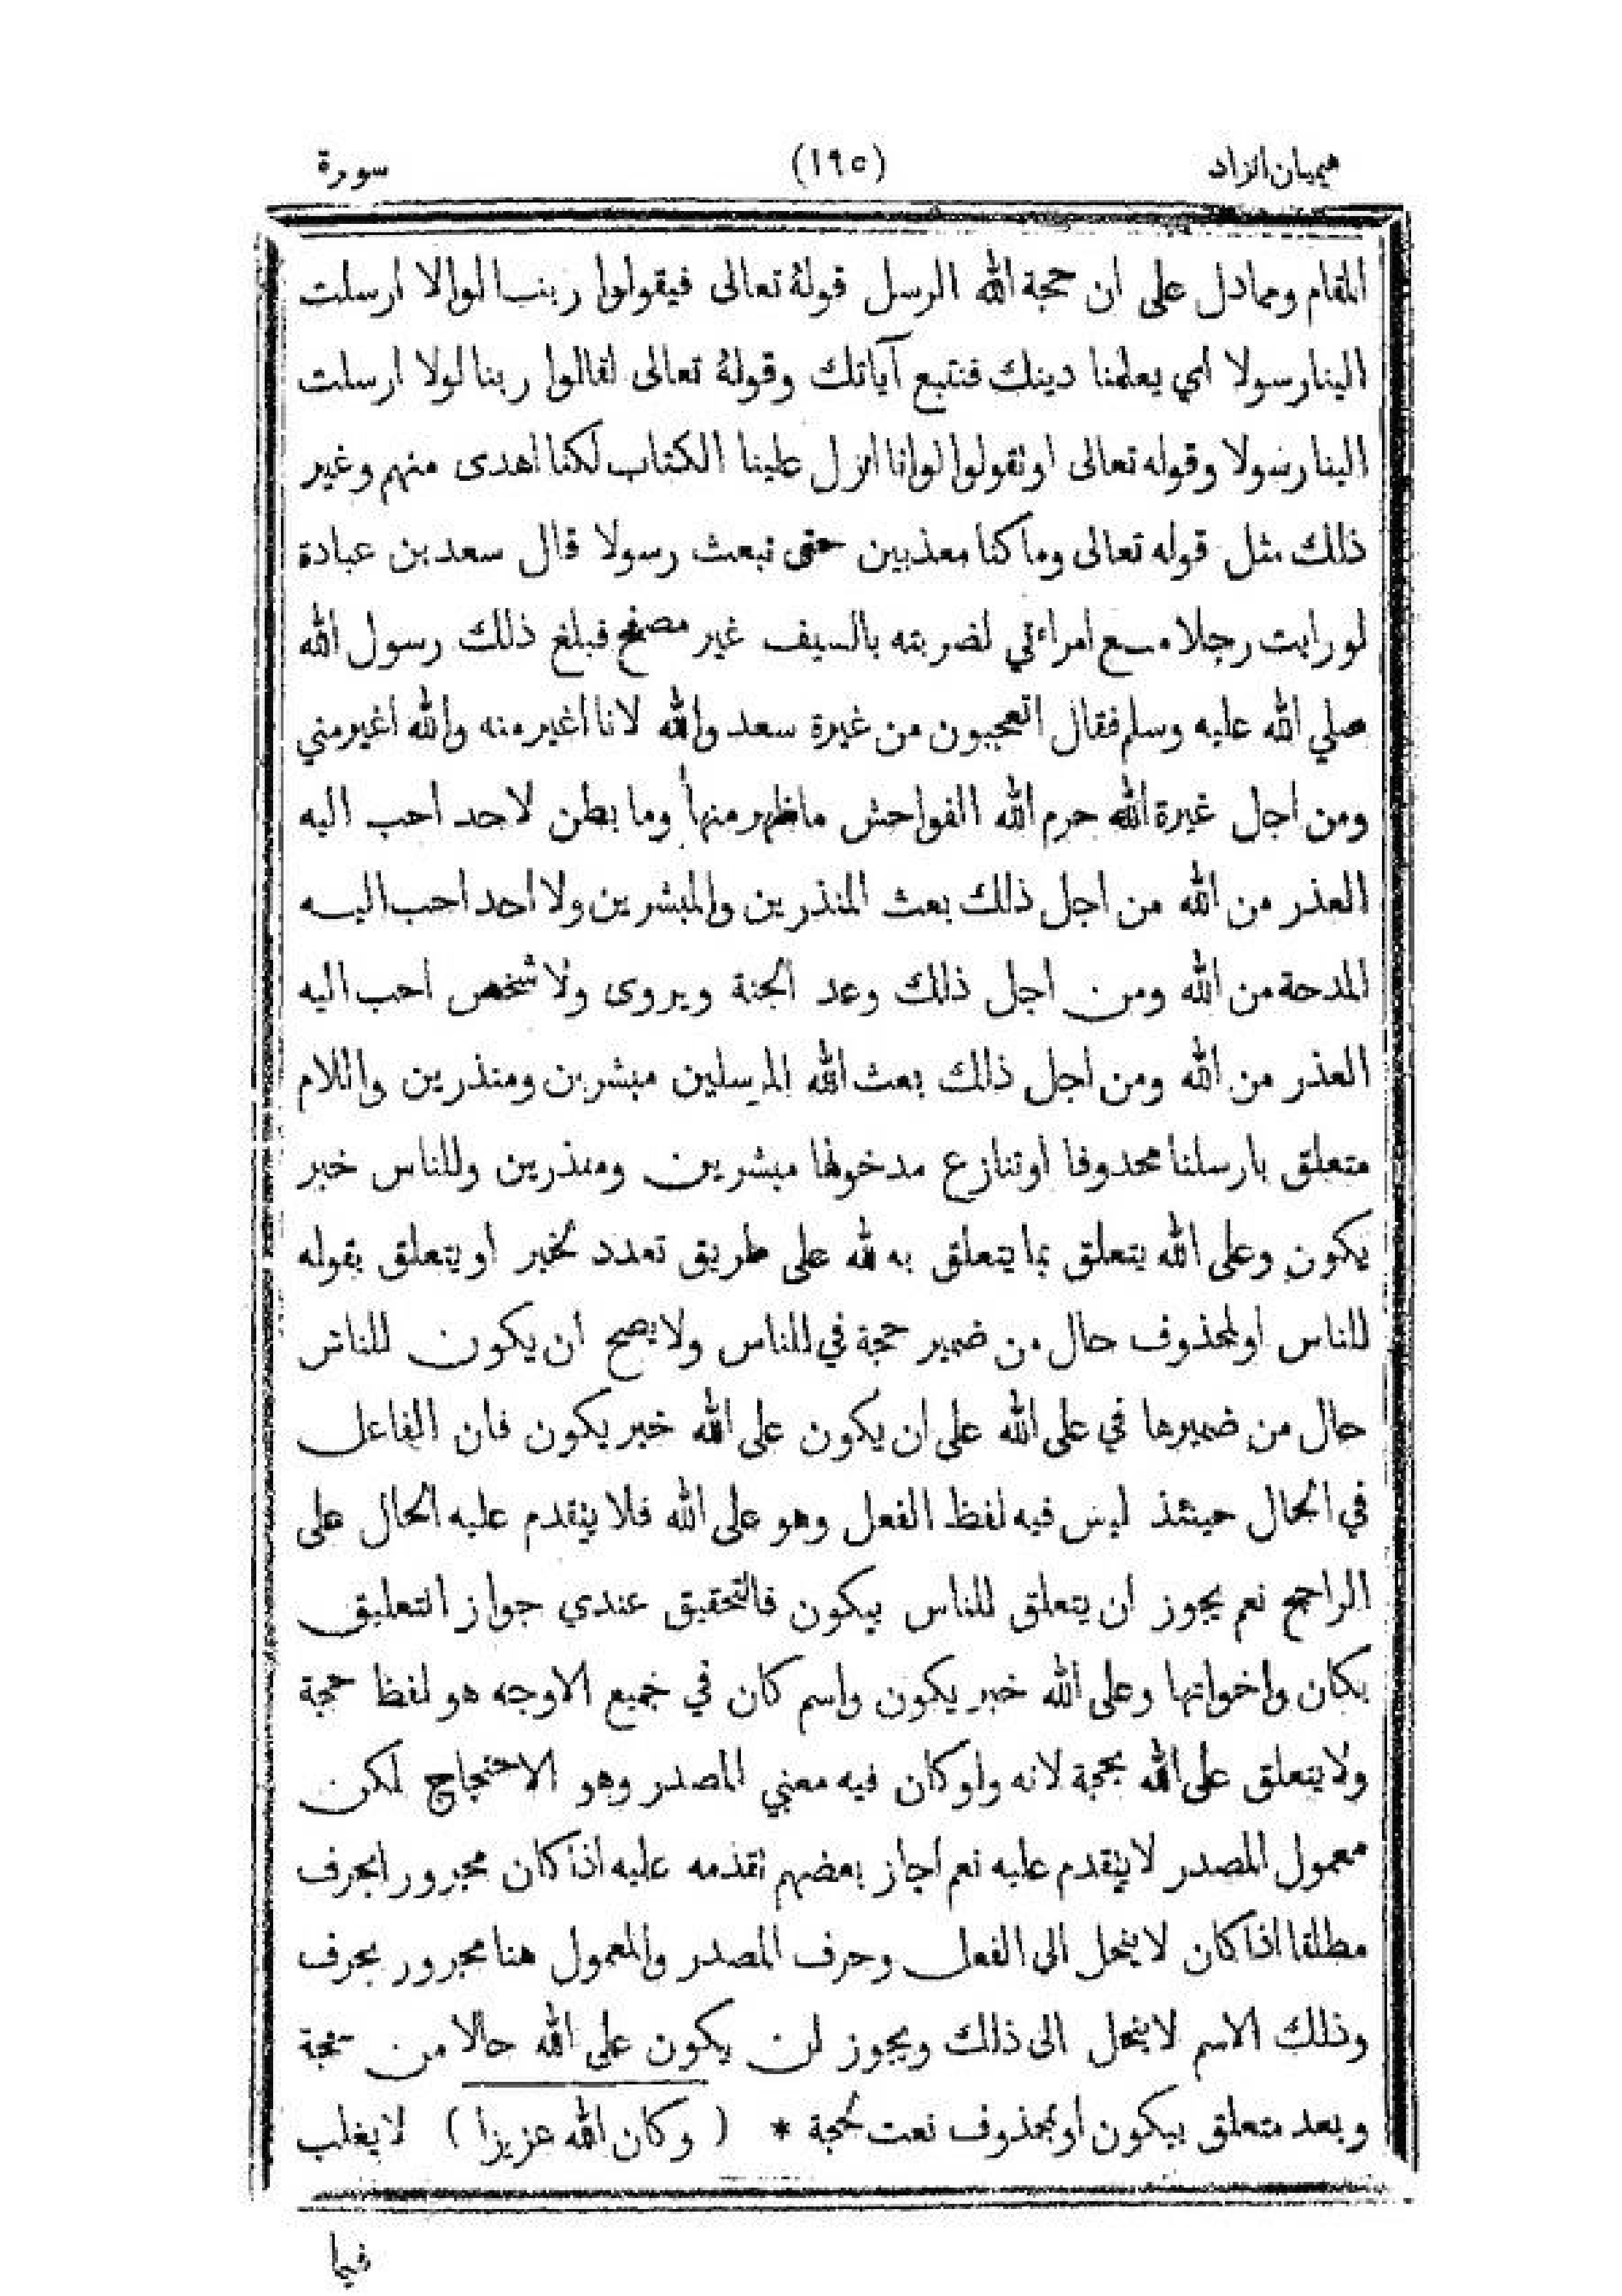 هيميان الزاد (١٩٥) سورة
المقام ومما دل على ان حجة الله الرسل قوله تعالى فيقولوا ربنا لولا ارسلت
الينا رسولا اي يعلمنا دينك فنتبع آياتك وقوله تعالى لقالوا ربنا لولا ارسلت
الينا رسولا وقوله تعالى او تقولوا لو انا انزل علينا الكتاب لكنا اهدى منهم وغير
ذلك مثل قوله تعالى وما كنا معذبين حتى نبعث رسولا قال سعد بن عبادة
لو رايت رجلا مع امراءتي لضربته بالسيف غير مصفح فبلغ ذلك رسول الله
صلي الله عليه وسلم فقال اتعجبون من غيرة سعد والله لانا اغير منه والله اغير مني
ومن اجل غيرة الله حرم الله الفواحش ما ظهر منها وما بطن لا حد احب اليه
العذر من الله من اجل ذلك بعث المنذرين والمبشرين ولا احد احب اليه
المدحة من الله ومن اجل ذلك وعد الجنة ويروى ولا شخص احب اليه
العذر من الله ومن اجل ذلك بعث الله المرسلين مبشرين ومنذرين واللام
متعلق بارسلنا محذوفا او تنازع مدخولها مبشرين ومنذرين وللناس خبر
يكون وعلى الله يتعلق بما يتعلق به لله على طريق تعدد لخبر او يتعلق بقوله
للناس او لمحذوف حال من ضمير حجة في للناس ولا يصح ان يكون للناس
حال من ضميرها في على الله على ان يكون على الله خبر يكون فان الفاعل
في الحال حينئذ ليس فيه لفظ الفعل وهو على الله فلا يتقدم عليه الحال على
الراجح نعم يجوز ان يتعلق للناس بيكون فالتحقيق عندي جواز التعليق
بكان واخواتها وعلى الله خبر يكون واسم كان في جميع الاوجه هو لفظ حجة
ولا يتعلق على الله بحجة لانه ولو كان فيه معني المصدر وهو الاحتجاج لكن
معمول المصدر لا يتقدم عليه نعم اجاز بعضهم تقدمه عليه اذا كان مجرورا بحرف
مطلقا اذا كان لا ينحل الى الفعل وحرف المصدر والمعمول هنا مجرور بحرف
وذلك الاسم لا ينحل الى ذلك ويجوز ان يكون على الله حالا من حجة
وبعد متعلق بيكون او بمحذوف نعت لحجة * ( وكان الله عزيزا ) لا يغلب
فيما